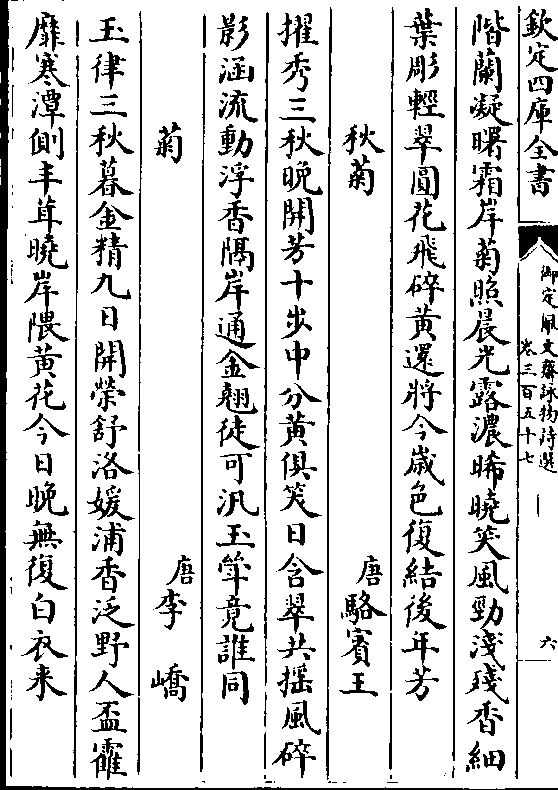 欽定四庫全書
御定佩文齋詠物詩選
卷三百五十七
六
階蘭凝曙霜岸菊照晨光露濃晞曉笑風勁淺殘香細
葉彫輕翠圓花飛碎黃還將今歲色復結後年芳
秋菊　唐駱賓王
擢秀三秋晚開芳十步中分黃俱笑日含翠共搖風碎
影涵流動浮香隔岸通金翹徒可汎玉斝竟誰同
菊　唐李嶠
玉律三秋暮金精九日開榮舒洛媛浦香泛野人盃靃
靡寒潭側丰茸曉岸隈黃花今日晚無復白衣来